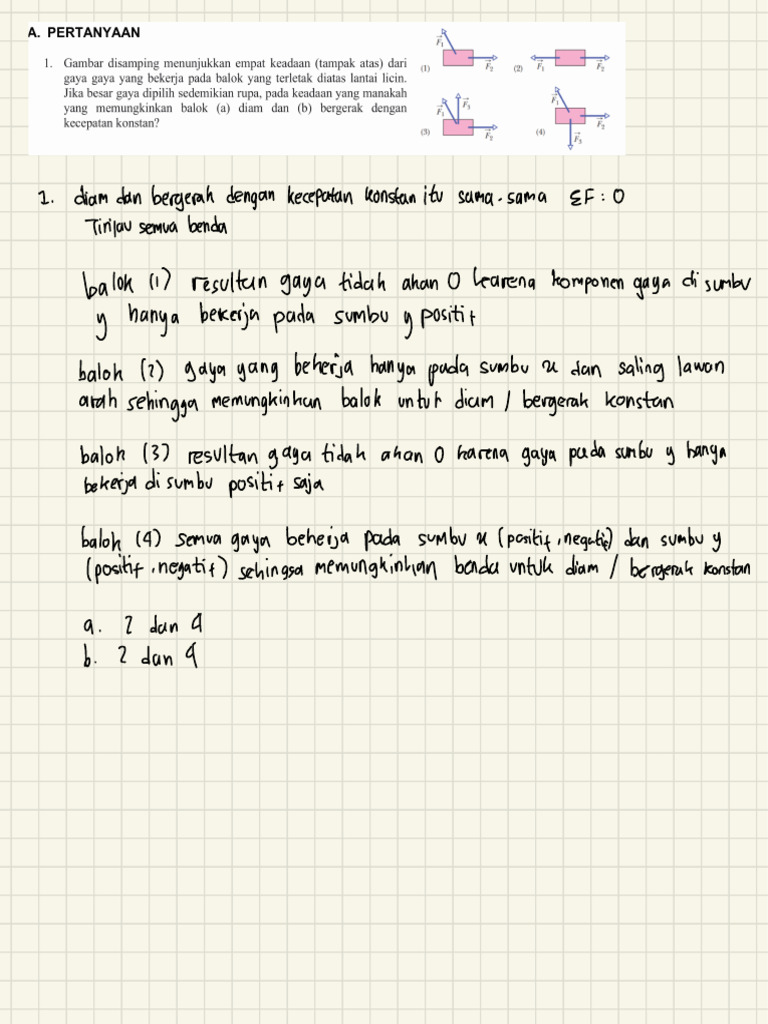 A. PERTANYAAN
1. Gambar disamping menunjukkan empat keadaan (tampak atas) dari
gaya gaya yang bekerja pada balok yang terletak diatas lantai licin.
Jika besar gaya dipilih sedemikian rupa, pada keadaan yang manakah
yang memungkinkan balok (a) diam dan (b) bergerak dengan
kecepatan konstan?
F₁ F₂ (1)
F₁ F₂ (2)
F₁ F₃ F₂ (3)
F₁ F₂ F₃ (4)
1. diam dan bergerak dengan kecepatan konstan itu sama-sama ΣF : 0
Tinjau semua benda
balok (1) resultan gaya tidak akan 0 karena komponen gaya di sumbu
y hanya bekerja pada sumbu y positif
balok (2) gaya yang bekerja hanya pada sumbu x dan saling lawan
arah sehingga memungkinkan balok untuk diam / bergerak konstan
balok (3) resultan gaya tidak akan 0 karena gaya pada sumbu y hanya
bekerja di sumbu positif saja
balok (4) semua gaya bekerja pada sumbu x (positif, negatif) dan sumbu y
(positif, negatif) sehingga memungkinkan benda untuk diam / bergerak konstan
a. 2 dan 4
b. 2 dan 4